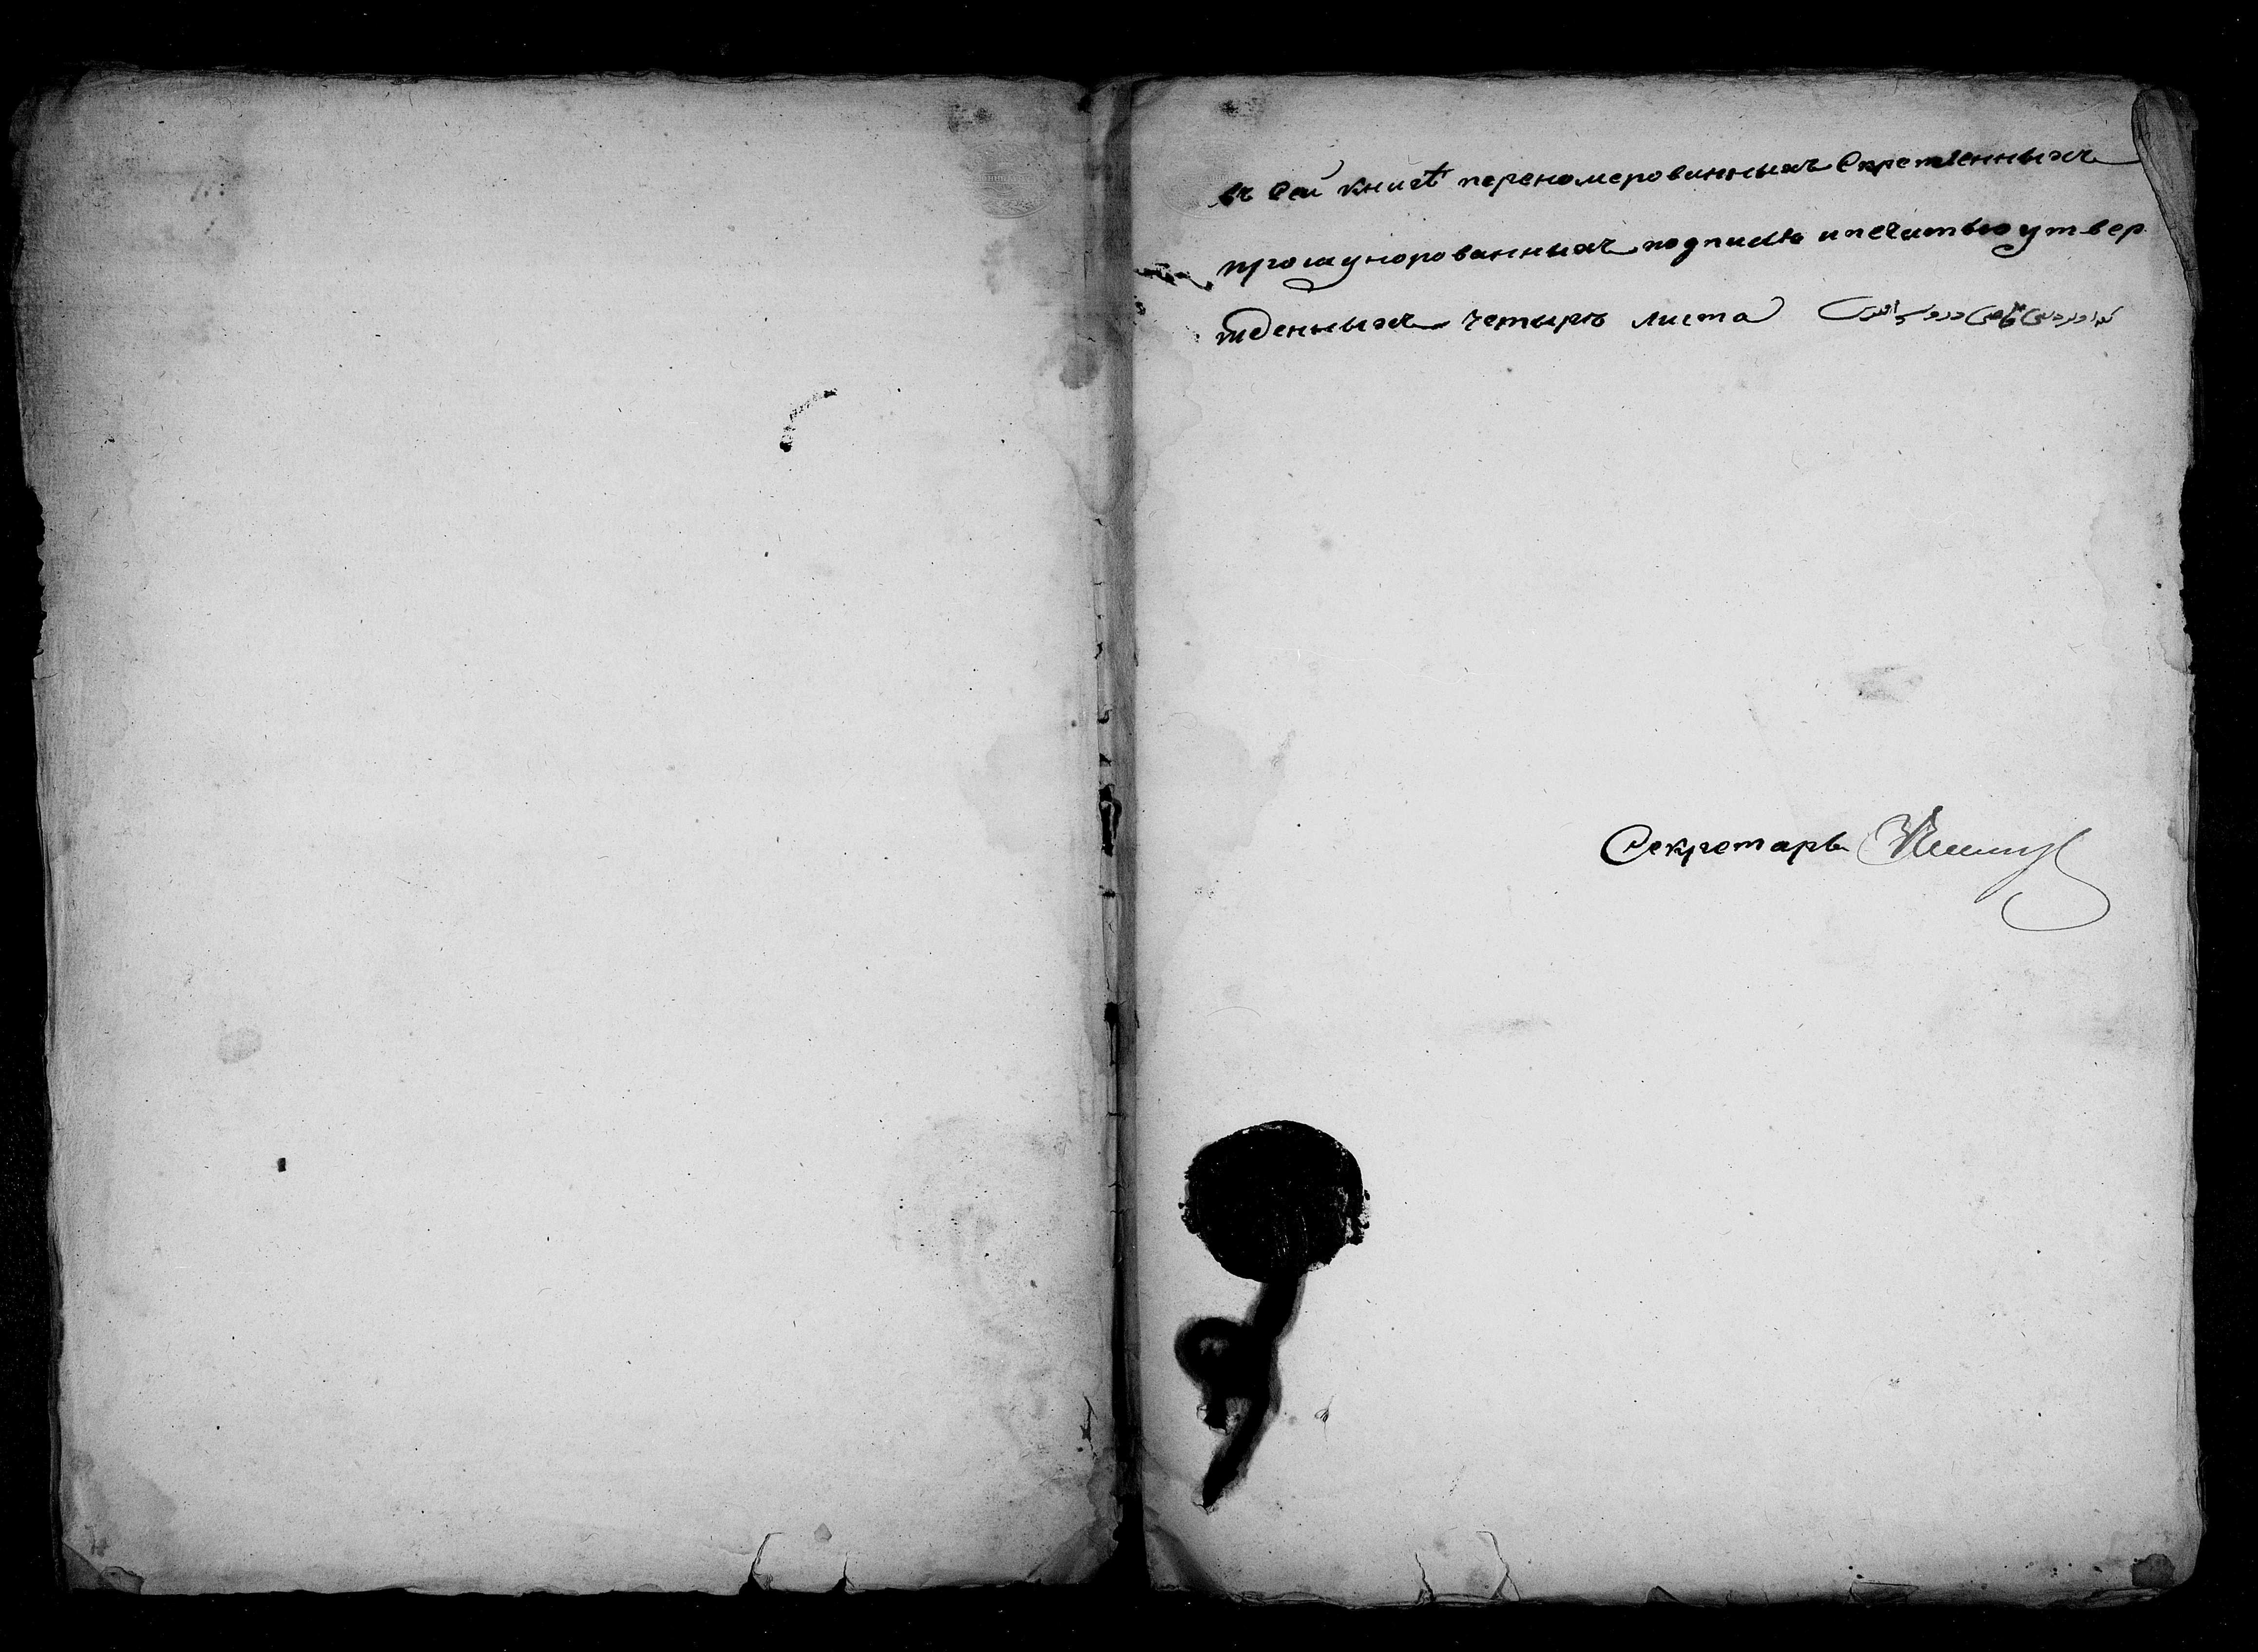 въ сей книгѣ переномерованныхъ скрепленныхъ
прошунорованныхъ подписью и печатью утвер
жденныхъ четыре листа
Секретарь